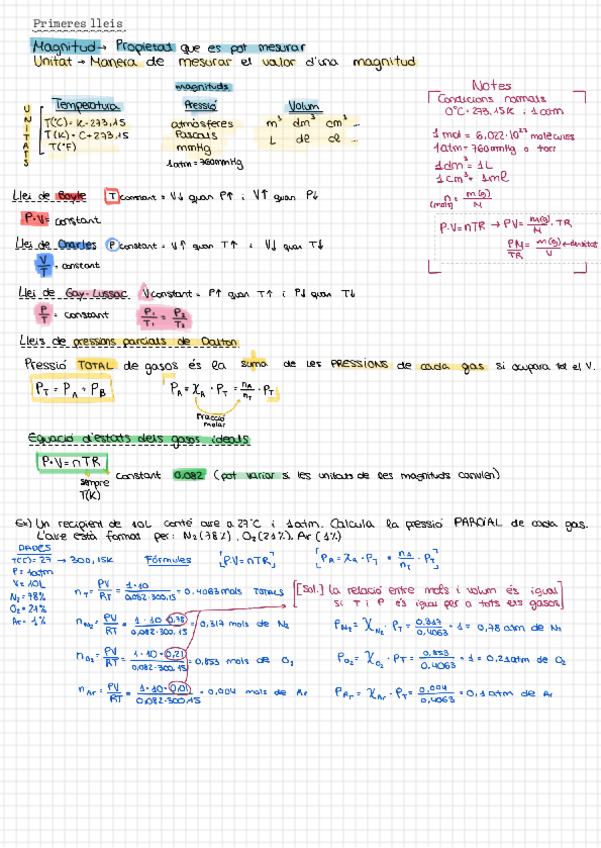 Primeres lleis
Magnitud → Propietat que es pot mesurar
Unitat → Manera de mesurar el valor d'una magnitud
magnituds
UNITATS
Temperatura Pressió Volum
T(ºC) = K-273,15 atmòsferes m³ dm³ cm³ ...
T(K) = C+273,15 Pascals L dL cL ...
T(ºF) mmHg
1atm = 760mmHg
Notes
Condicions normals
0ºC = 273,15K i 1atm
1 mol = 6,022·10²³ molècules
1atm = 760mmHg o torr
1dm³ = 1L
1cm³ = 1ml
n (mols) = m(g)/M
P·V=nTR → PV = m(g)/M · TR
PM/TR = m(g)/V ← densitat
Llei de Boyle T constant = V↓ quan P↑ i V↑ quan P↓
P·V = constant
Llei de Charles P constant = V↑ quan T↑ i V↓ quan T↓
V/T = constant
Llei de Gay-Lussac V constant = P↑ quan T↑ i P↓ quan T↓
P/T = constant P₁/T₁ = P₂/T₂
Lleis de pressions parcials de Dalton
Pressió TOTAL de gasos és la suma de les PRESSIONS de cada gas si ocupara tot el V.
P_T = P_A + P_B P_A = χ_A · P_T = n_A/n_T · P_T
Fracció molar
Equació d'estats dels gasos ideals
P·V = nTR
sempre T(K)
constant 0,082 (pot variar si les unitats de les magnituds canvien)
Ex) Un recipient de 10L conté aire a 27ºC i 1atm. Calcula la pressió PARCIAL de cada gas.
L'aire està format per: N₂(78%), O₂(21%), Ar(1%)
DADES
T(ºC) = 27 → 300,15K Fórmules [P·V=nTR] [P_A = χ_A · P_T = n_A/n_T · P_T]
P = 1atm
V = 10L
N₂ = 78%
O₂ = 21%
Ar = 1%
n_T = PV/RT = 1·10/0,082·300,15 = 0,4063 mols TOTALS
[[Sol.] La relació entre mols i volum és igual
si T i P és igual per a tots els gasos]
n_N₂ = PV/RT = 1·10·0,78/0,082·300,15 = 0,317 mols de N₂ P_N₂ = χ_N₂ · P_T = 0,317/0,4063 · 1 = 0,78 atm de N₂
n_O₂ = PV/RT = 1·10·0,21/0,082·300,15 = 0,853 mols de O₂ P_O₂ = χ_O₂ · P_T = 0,853/0,4063 · 1 = 0,21atm de O₂
n_Ar = PV/RT = 1·10·0,01/0,082·300,15 = 0,004 mols de Ar P_Ar = χ_Ar · P_T = 0,004/0,4063 · 1 = 0,1 atm de Ar